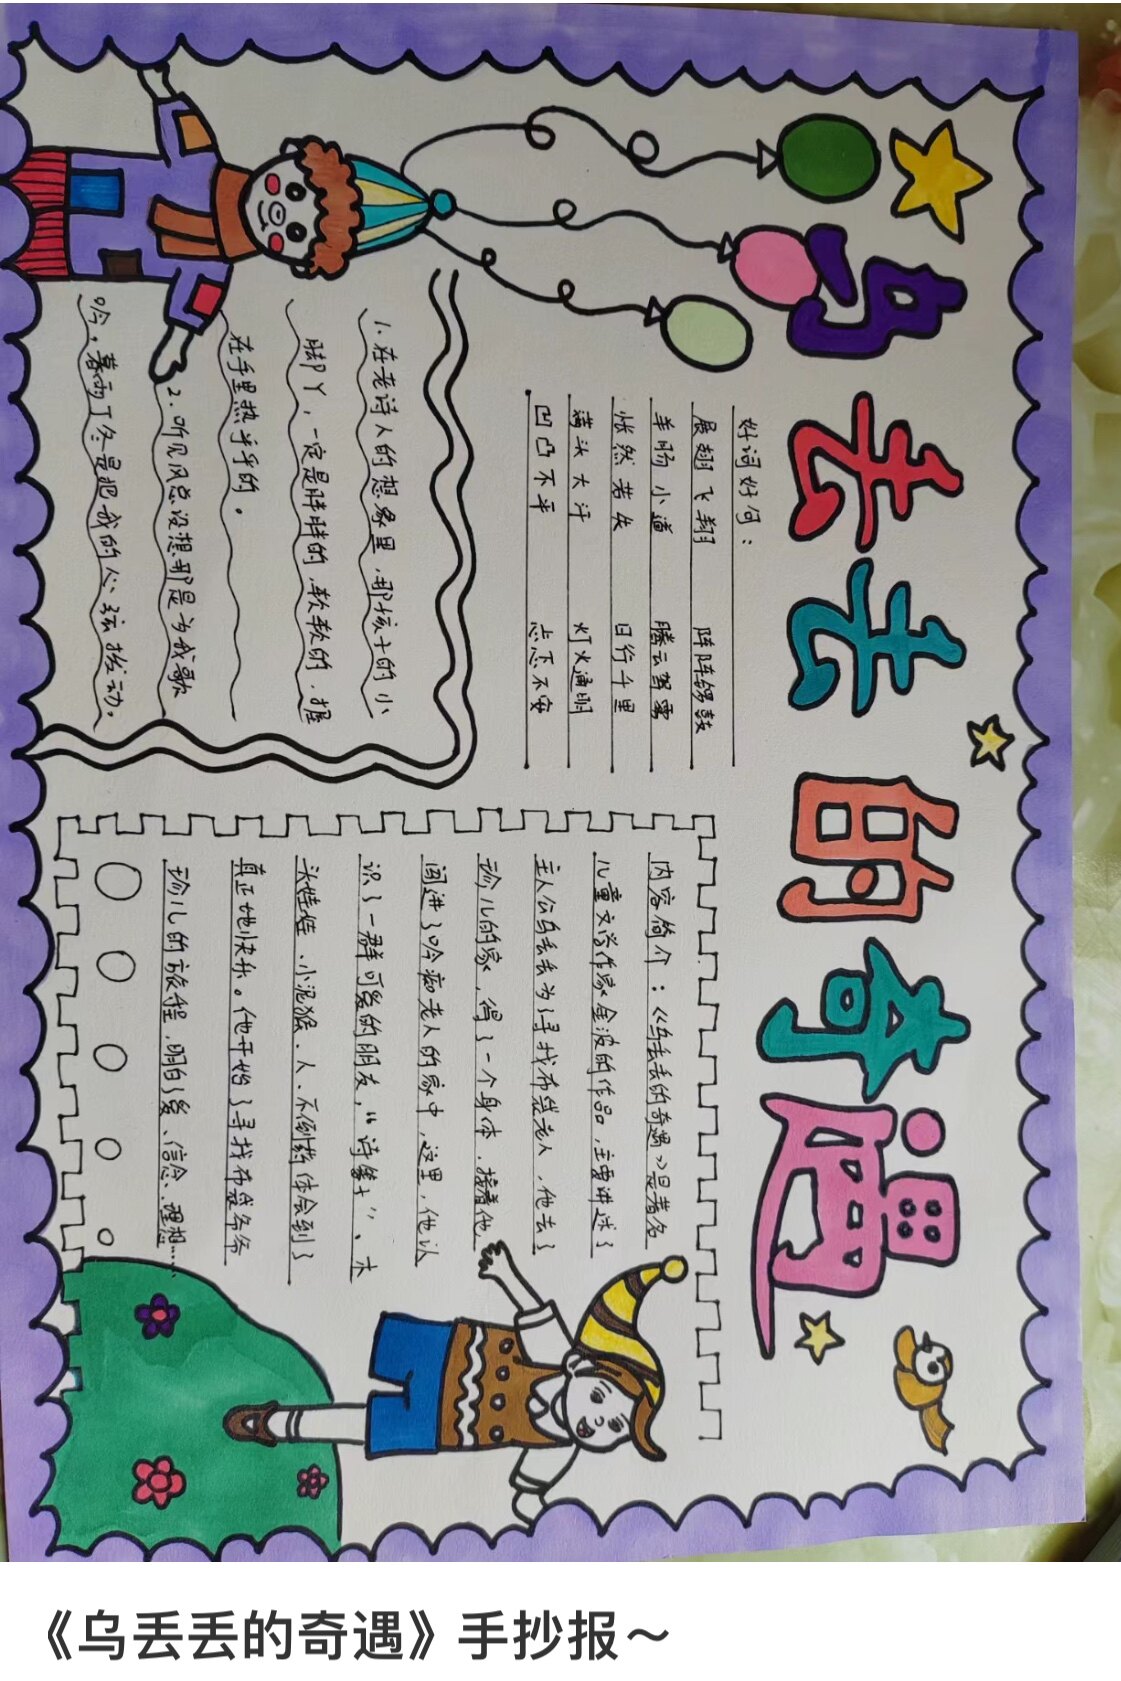 乌丢丢的奇遇
好词好句：
展翅飞翔 阵阵锣鼓
羊肠小道 腾云驾雾
怅然若失 日行千里
满头大汗 灯火通明
凹凸不平 忐忑不安
1.在老诗人的想象里,那孩子的小
脚丫,一定是胖胖的,软软的,握
在手里热乎乎的。
2.听见风总没想那是为我歌
吟,暮雨丁冬是把我的心弦拨动。
内容简介：《乌丢丢的奇遇》是著名
儿童文学作家金波的作品,主要讲述了
主人公乌丢丢为了寻找布袋老人,他去了
珍儿的家,得了一个身体,接着他
闯进了吟痴老人的家中,这里,他认
识了一群可爱的朋友,“诗篓子”、木
头娃娃、小泥猴、人、不倒翁体会到了
真正地快乐。他开始了寻找布袋爷爷
珍儿的旅程,明白了爱、信念、理想……
《乌丢丢的奇遇》手抄报～